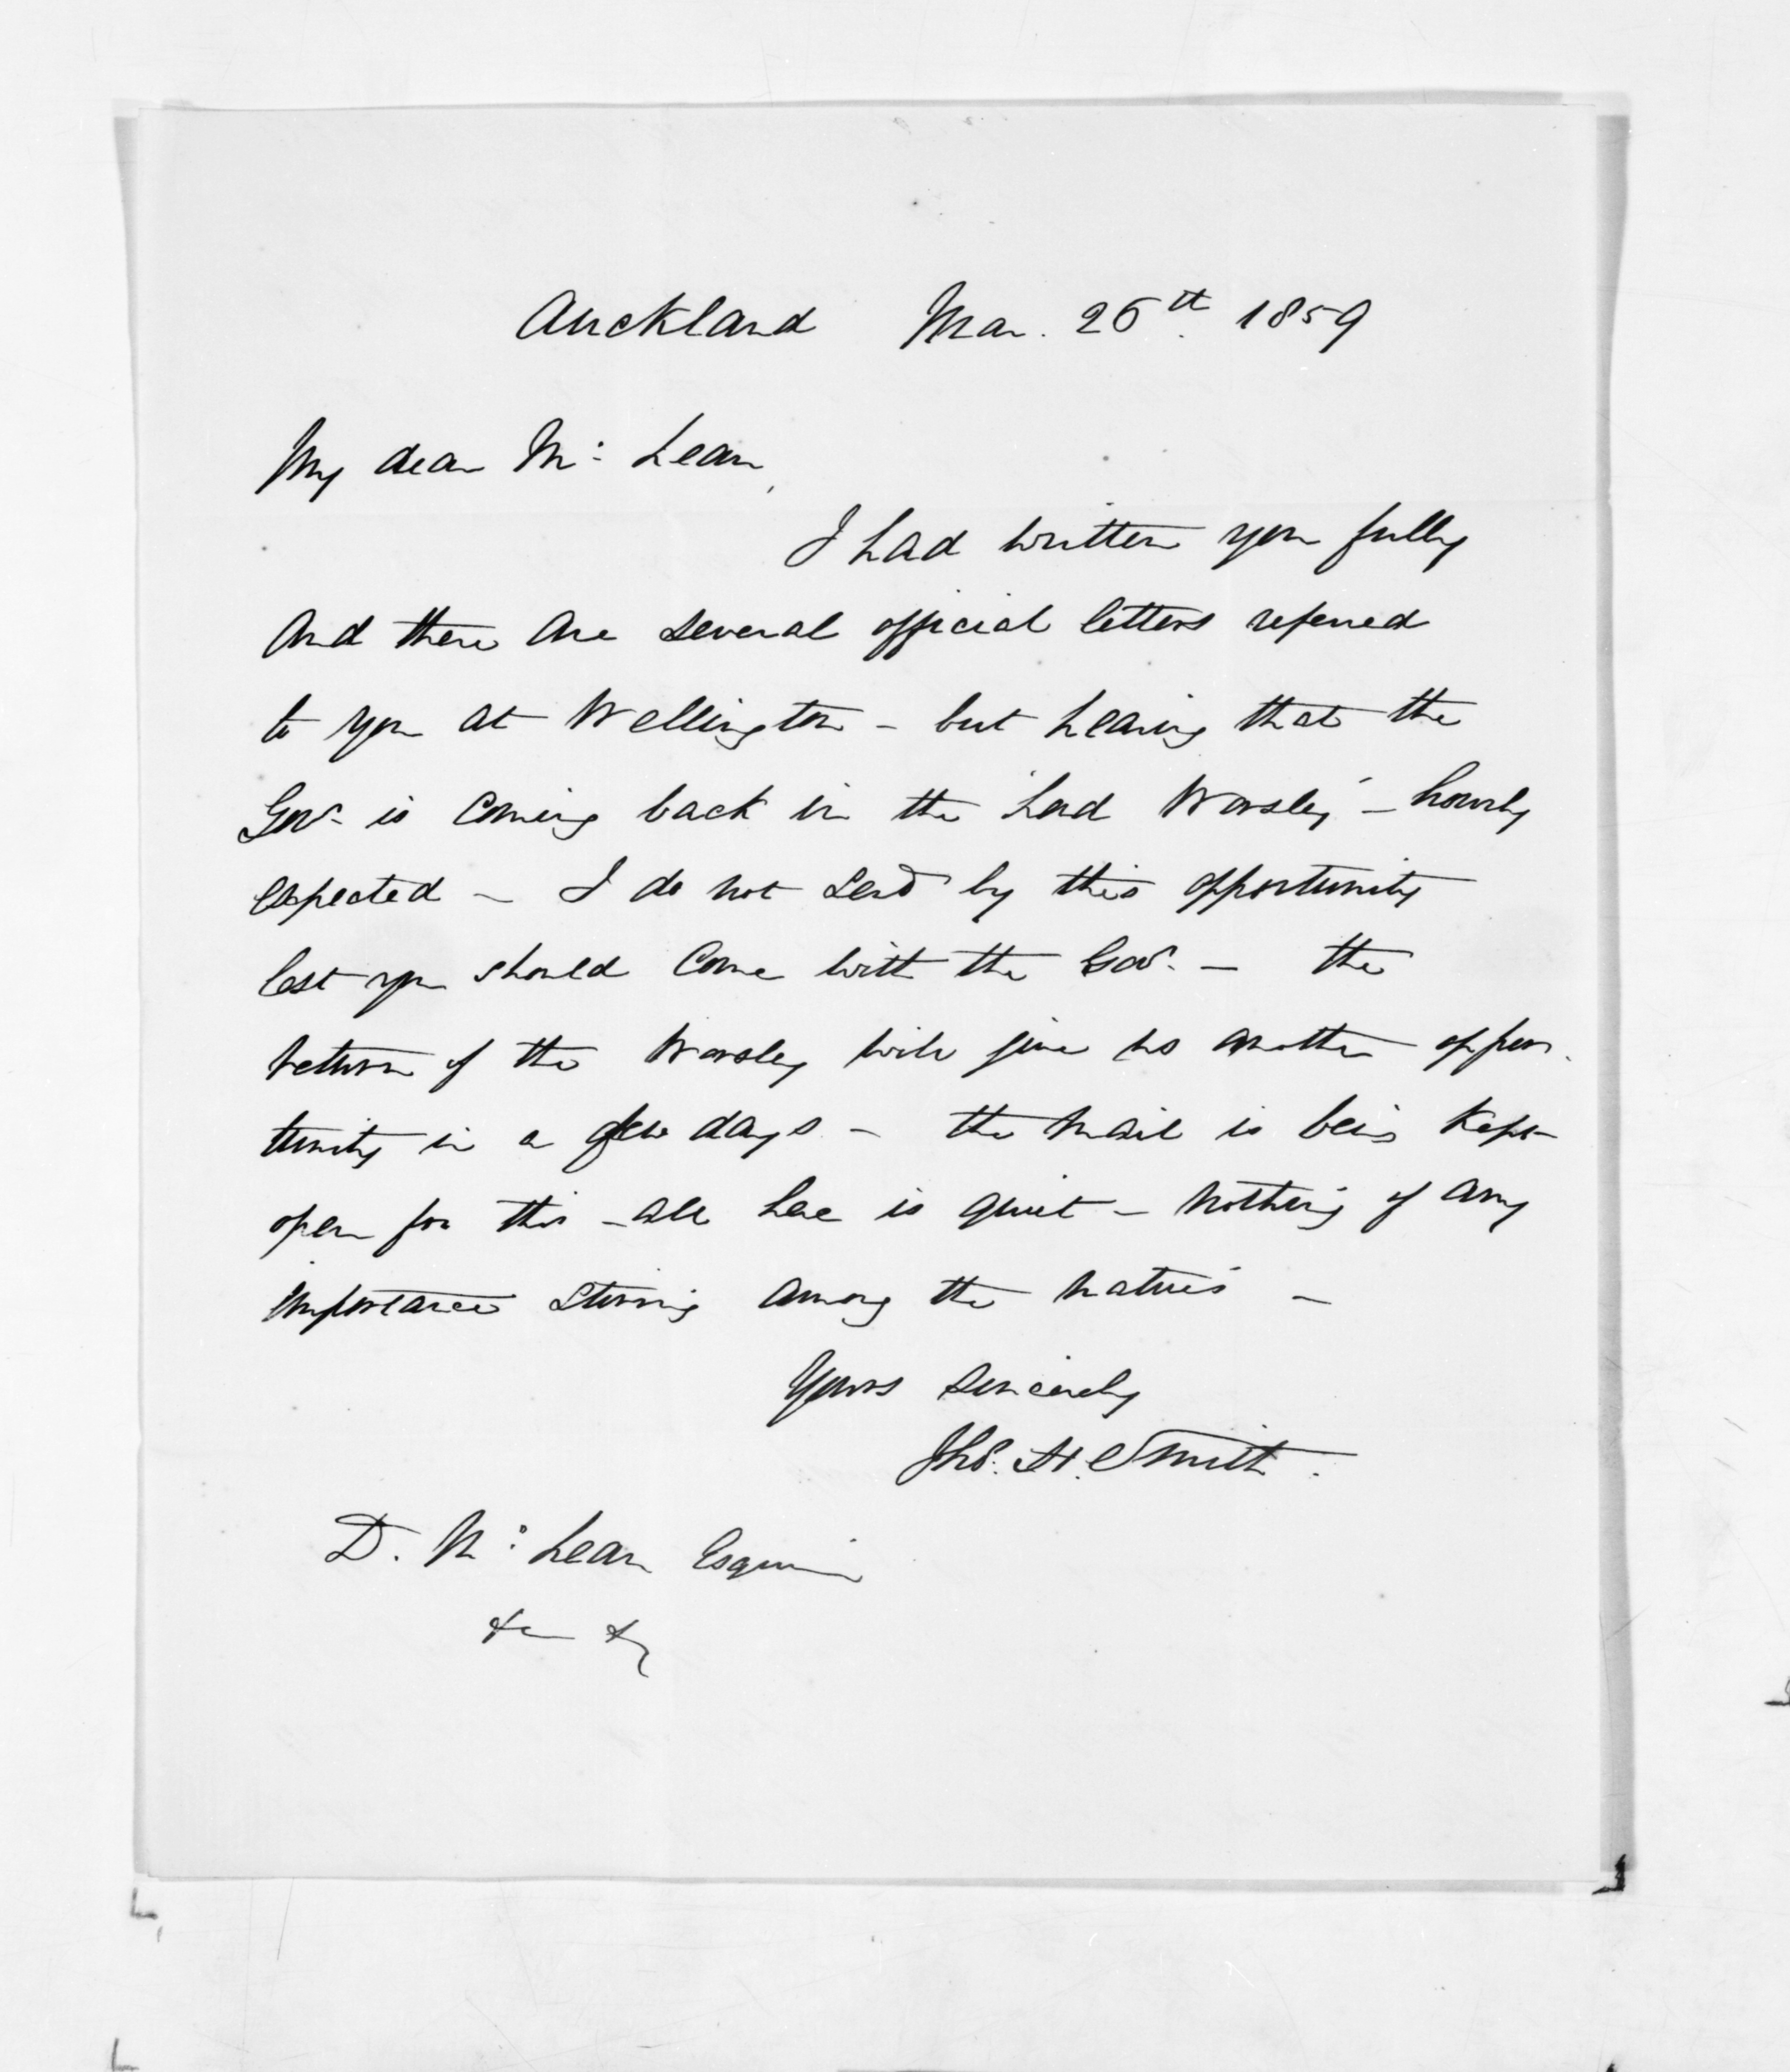 Auckland Mar. 26th 1859
My dear Mc Lean,
I had written you fully
and there are several official letters referred
to you at Wellington - but hearing that the
Govr is coming back in the Lord Worsley - hourly
expected - I do not send by this opportunity
lest you should come with the Govr. - the
return of the Worsley will give us another oppor-
tunity in a few days - the mail is being kept
open for this - all here is quiet - nothing of any
importance stirring among the natives -
Yours sincerely
Thos. H. Smith.
D. Mc Lean Esquire
&c &c